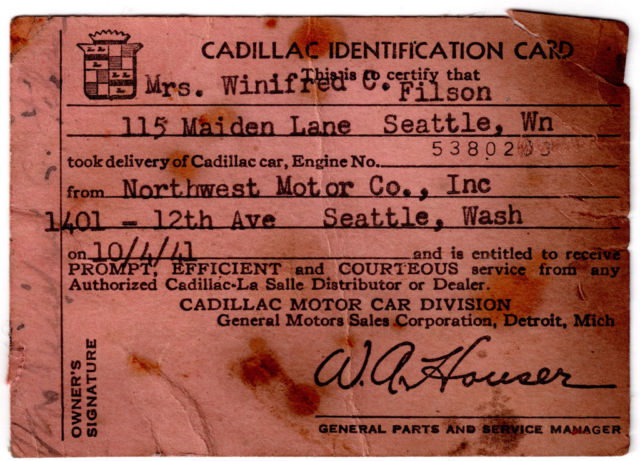 CADILLAC IDENTIFICATION CARD
This is to certify that
Mrs. Winifred C. Filson
115 Maiden Lane Seattle, Wn
took delivery of Cadillac car, Engine No. 53802
from Northwest Motor Co., Inc
1401 - 12th Ave Seattle, Wash
on 10/4/41 and is entitled to receive
PROMPT, EFFICIENT and COURTEOUS service from any
Authorized Cadillac-La Salle Distributor or Dealer.
CADILLAC MOTOR CAR DIVISION
General Motors Sales Corporation, Detroit, Mich
W. A. Houser
GENERAL PARTS AND SERVICE MANAGER
OWNER'S
SIGNATURE